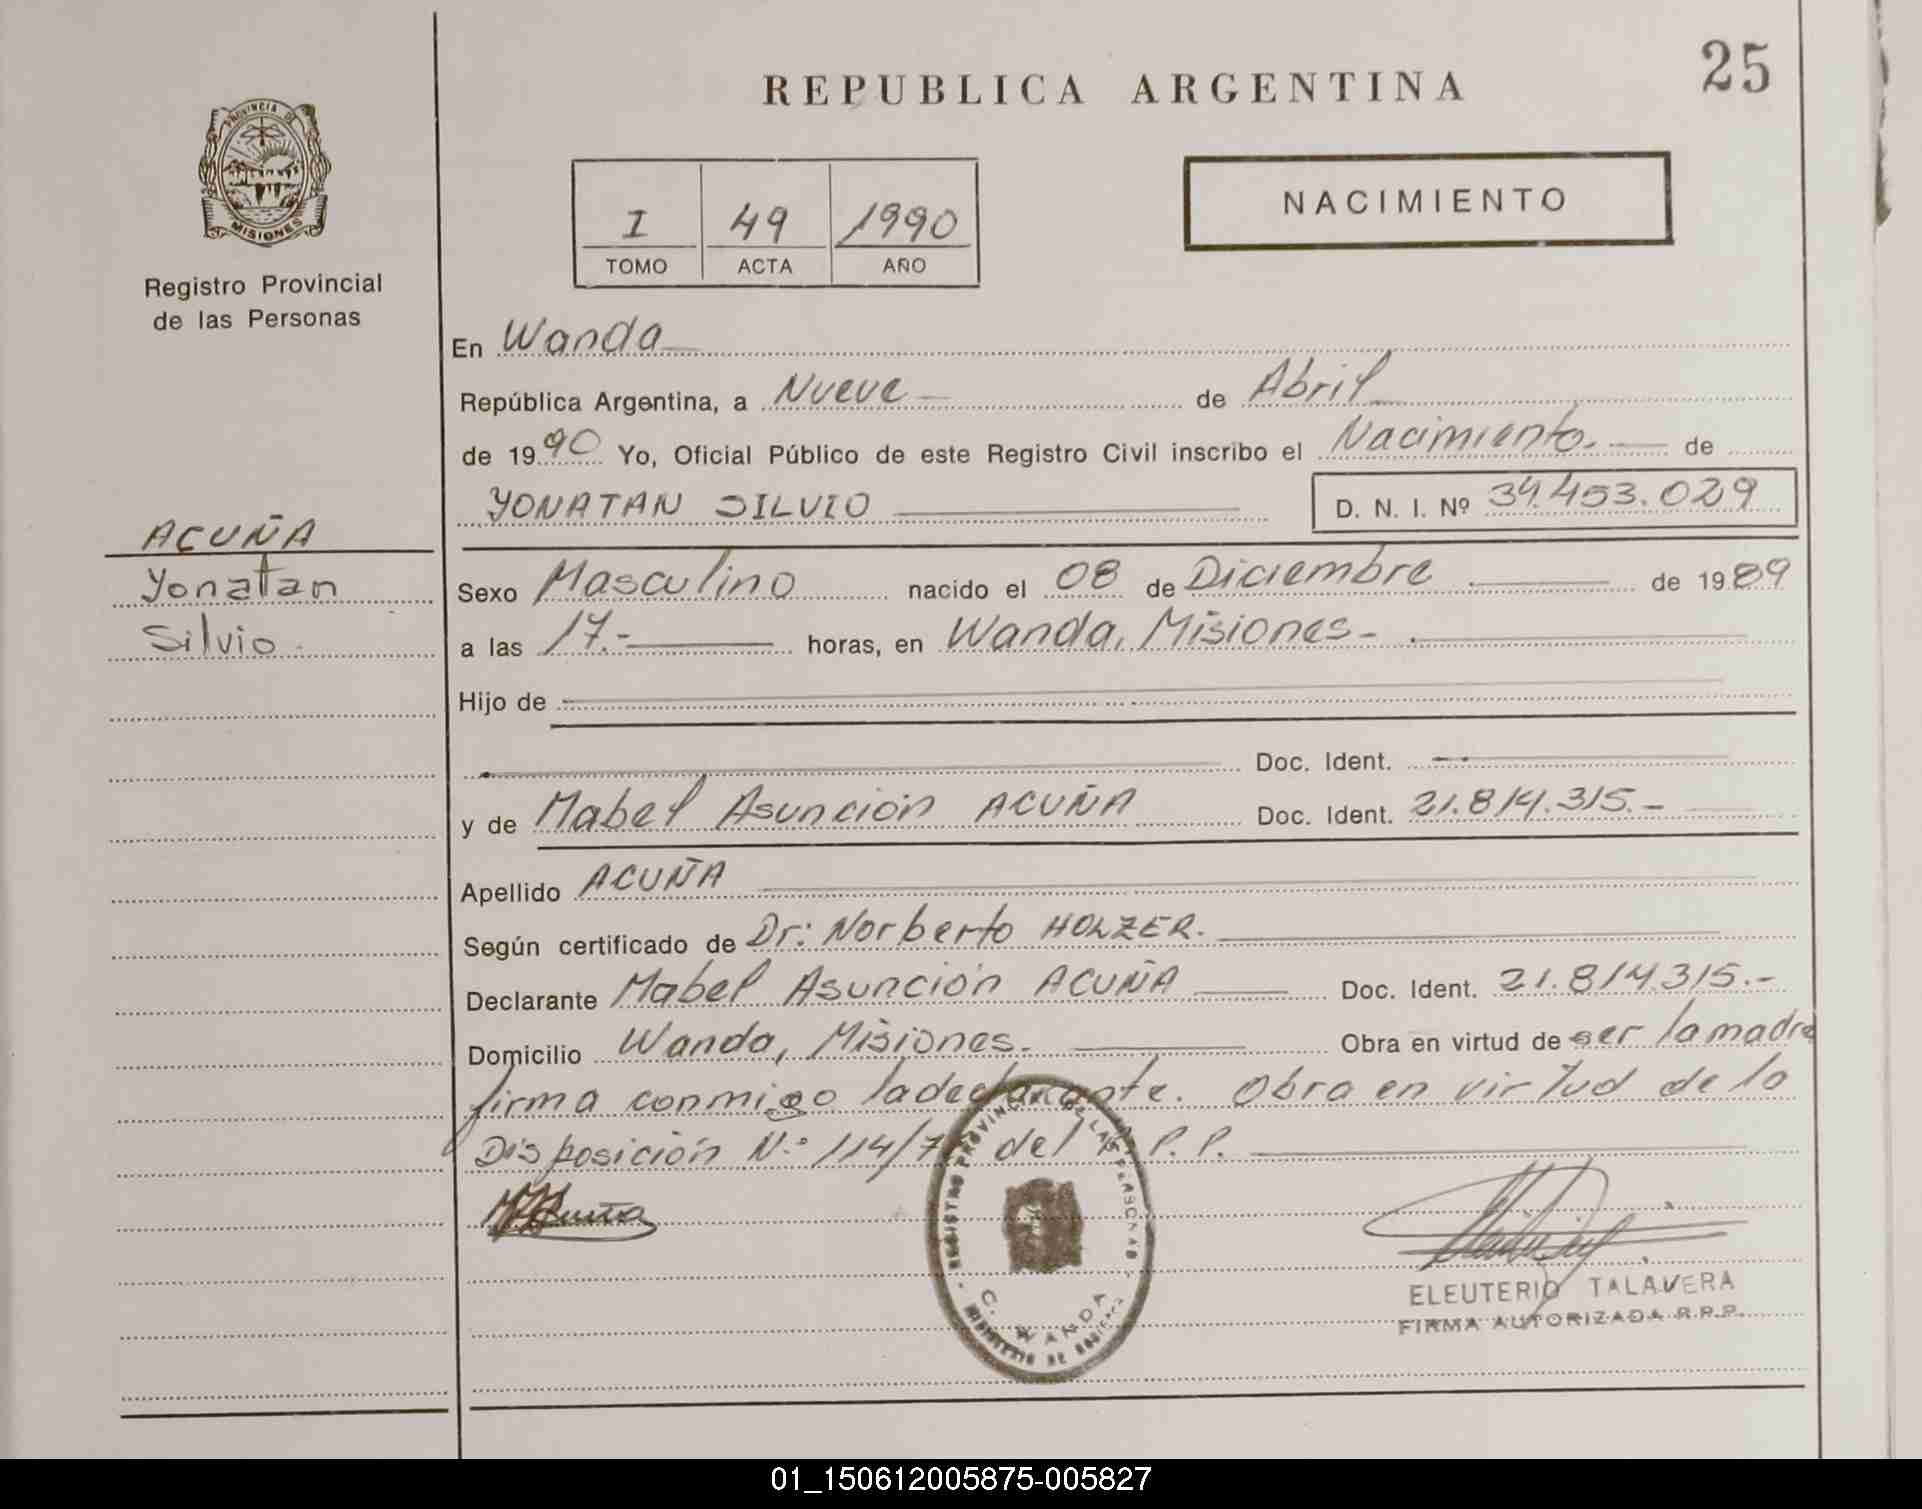 25
REPUBLICA ARGENTINA
PROVINCIA DE
MISIONES
Registro Provincial
de las Personas
I 49 1990
TOMO ACTA AÑO
NACIMIENTO
En Wanda
República Argentina, a Nueve de Abril
de 1990 Yo, Oficial Público de este Registro Civil inscribo el Nacimiento. de
YONATAN SILVIO D. N. I. Nº 34.453.029
ACUÑA
Yonatan
Silvio.
Sexo Masculino nacido el 08 de Diciembre de 1989
a las 17.- horas, en Wanda, Misiones-
Hijo de
Doc. Ident.
y de Mabel Asunción ACUÑA Doc. Ident. 21.814.315.-
Apellido ACUÑA
Según certificado de Dr: Norberto HOLZER.
Declarante Mabel Asunción ACUÑA Doc. Ident. 21.814.315.-
Domicilio Wanda, Misiones. Obra en virtud de ser la madre
firma conmigo la declarante. Obra en virtud de la
Disposición N.º 114/7 del R.P.P.
REGISTRO PROVINCIAL DE LAS PERSONAS
C. WANDA
MINISTERIO DE
ELEUTERIO TALAVERA
FIRMA AUTORIZADA R.P.P.
01_150612005875-005827